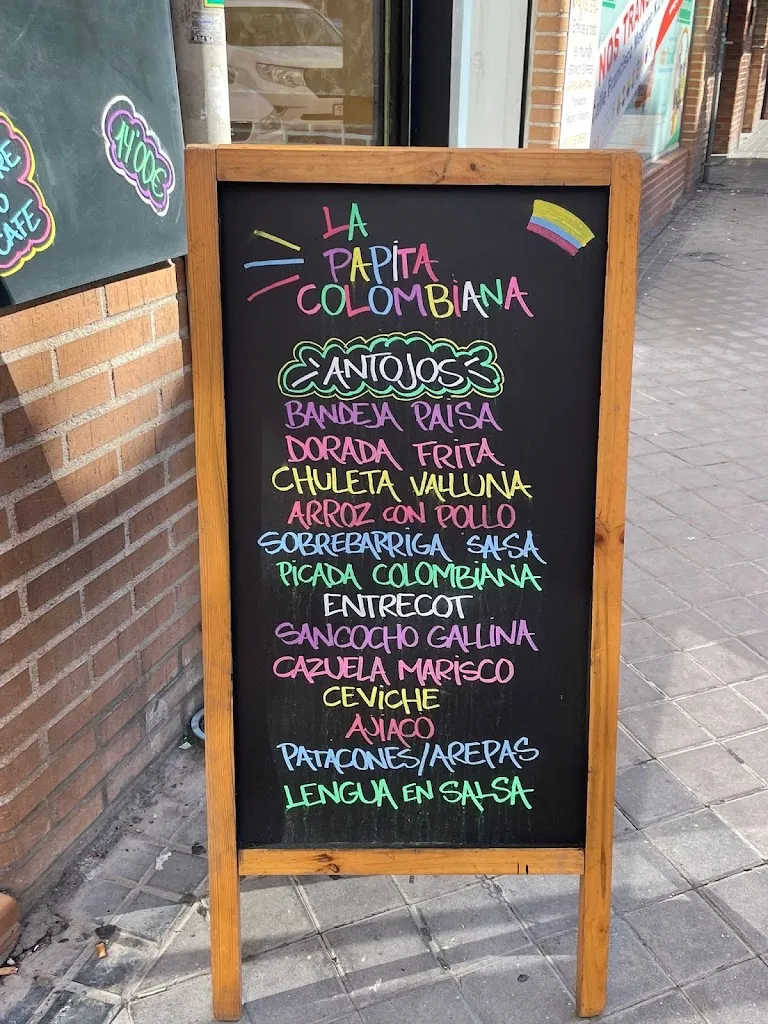 14'00€
CAFE
LA
PAPITA
COLOMBIANA
ANTOJOS
BANDEJA PAISA
DORADA FRITA
CHULETA VALLUNA
ARROZ CON POLLO
SOBREBARRIGA SALSA
PICADA COLOMBIANA
ENTRECOT
SANCOCHO GALLINA
CAZUELA MARISCO
CEVICHE
AJIACO
PATACONES/AREPAS
LENGUA EN SALSA